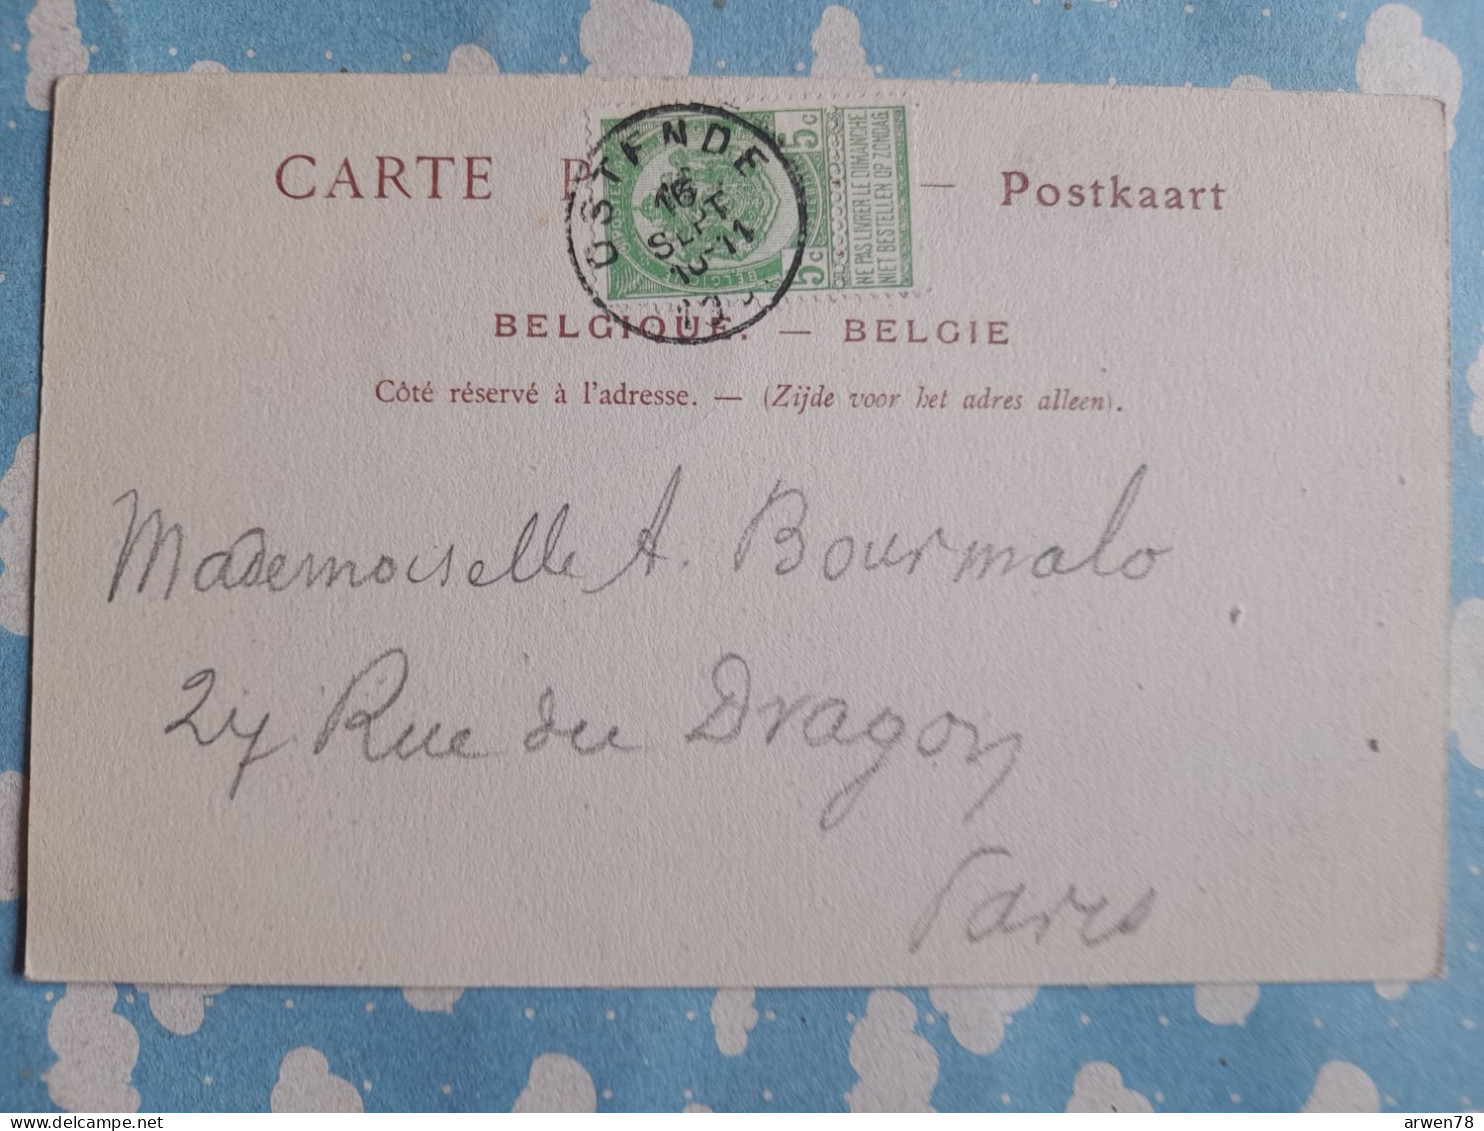 CARTE — Postkaart
OSTENDE
16
SEPT
10-11
5c
5c
BELGIQUE
NE PAS LIVRER LE DIMANCHE
NIET BESTELLEN OP ZONDAG
BELGIQUE. — BELGIE
Côté réservé à l'adresse. — (Zijde voor het adres alleen).
Mademoiselle A. Bourmalo
24 Rue du Dragon
Paris
arwen78